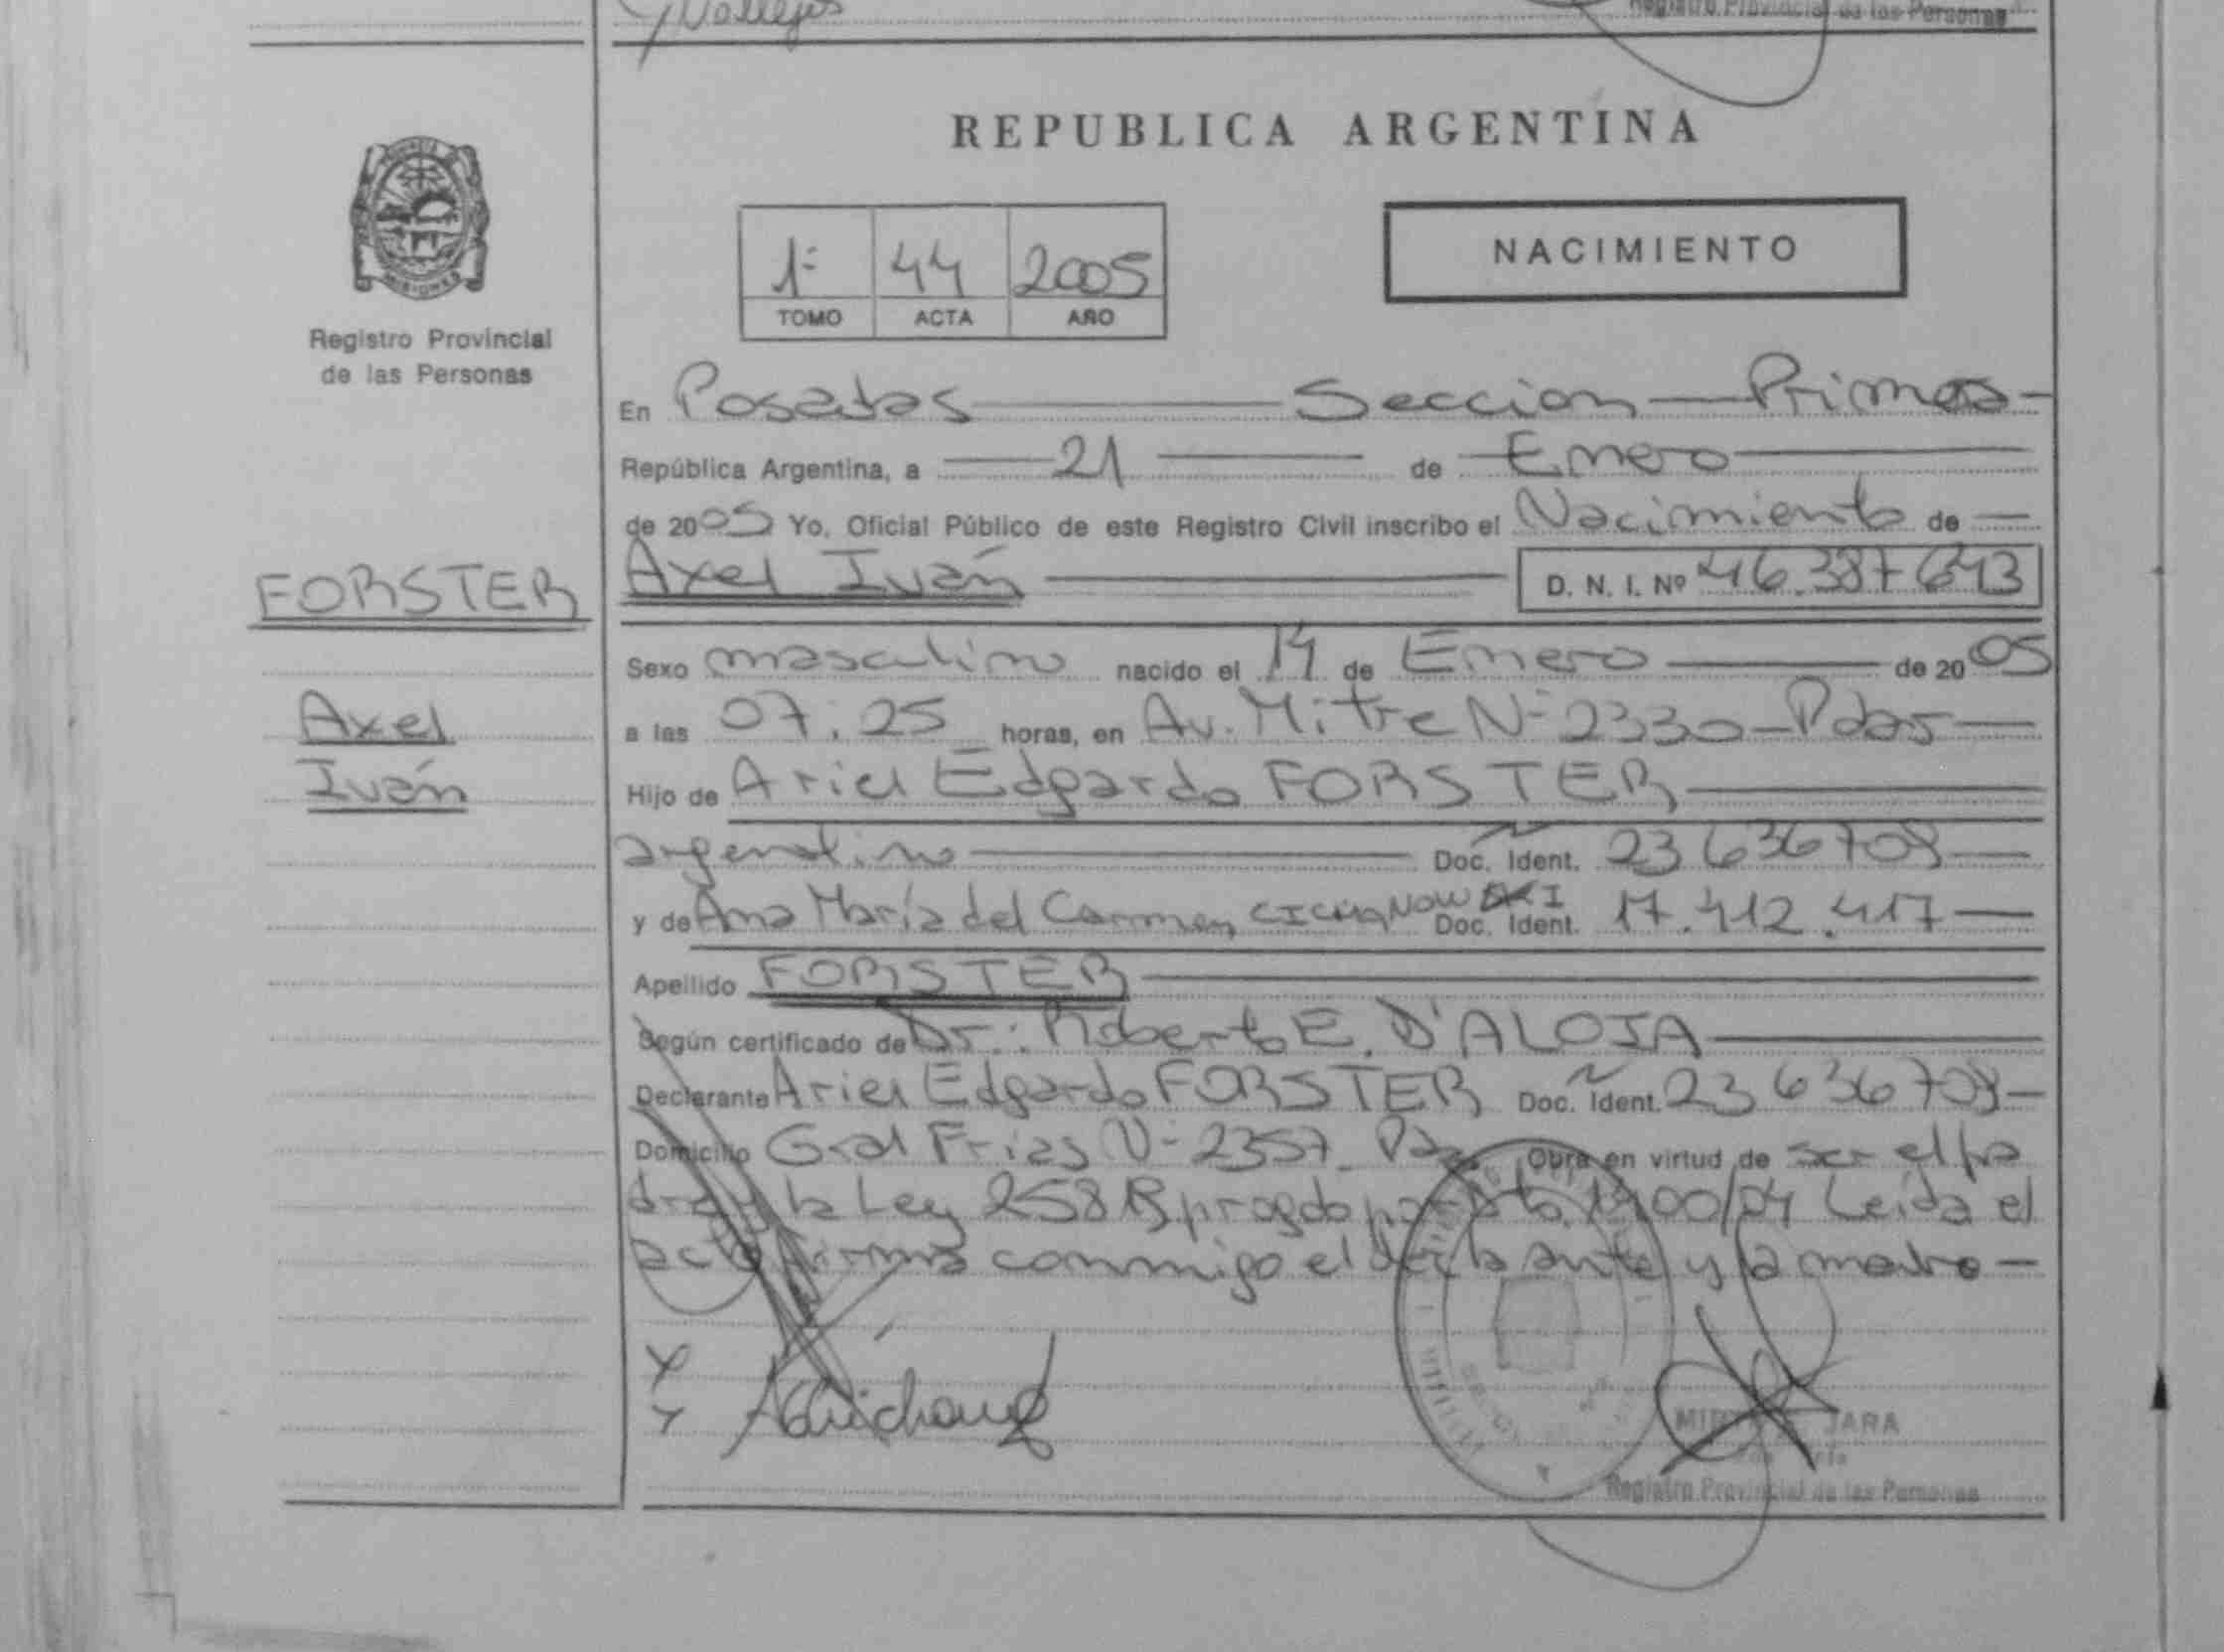 Vallejos
Registro Provincial de las Personas
REPUBLICA ARGENTINA
PROVINCIA DE
MISIONES
Registro Provincial
de las Personas
1º 44 2005
TOMO ACTA AÑO
NACIMIENTO
En Posadas Seccion Primera
República Argentina, a 21 de Enero
de 2005 Yo, Oficial Público de este Registro Civil inscribo el Nacimiento de
FORSTER
Axel Iván D. N. I. Nº 46.387643
Sexo masculino nacido el 14 de Enero de 2005
Axel
a las 07:25 horas, en Av. Mitre Nº 2330 - Pdas
Iván
Hijo de Ariel Edgardo FORSTER
argentino Doc. Ident. 23 636 708
y de Ana María del Carmen CICHANOWSKI Doc. Ident. 17.412.417
Apellido FORSTER
Según certificado de Dr: Roberto E. D'ALOIA
Declarante Ariel Edgardo FORSTER Doc. Ident. 23 636 708
Domicilio Gral Frias Nº 2357 Obra en virtud de ser el pa
dre y la Ley 258 por 1400/04 Leida el
acta firma conmigo el declarante y la madre
JARA
Registro Provincial de las Personas